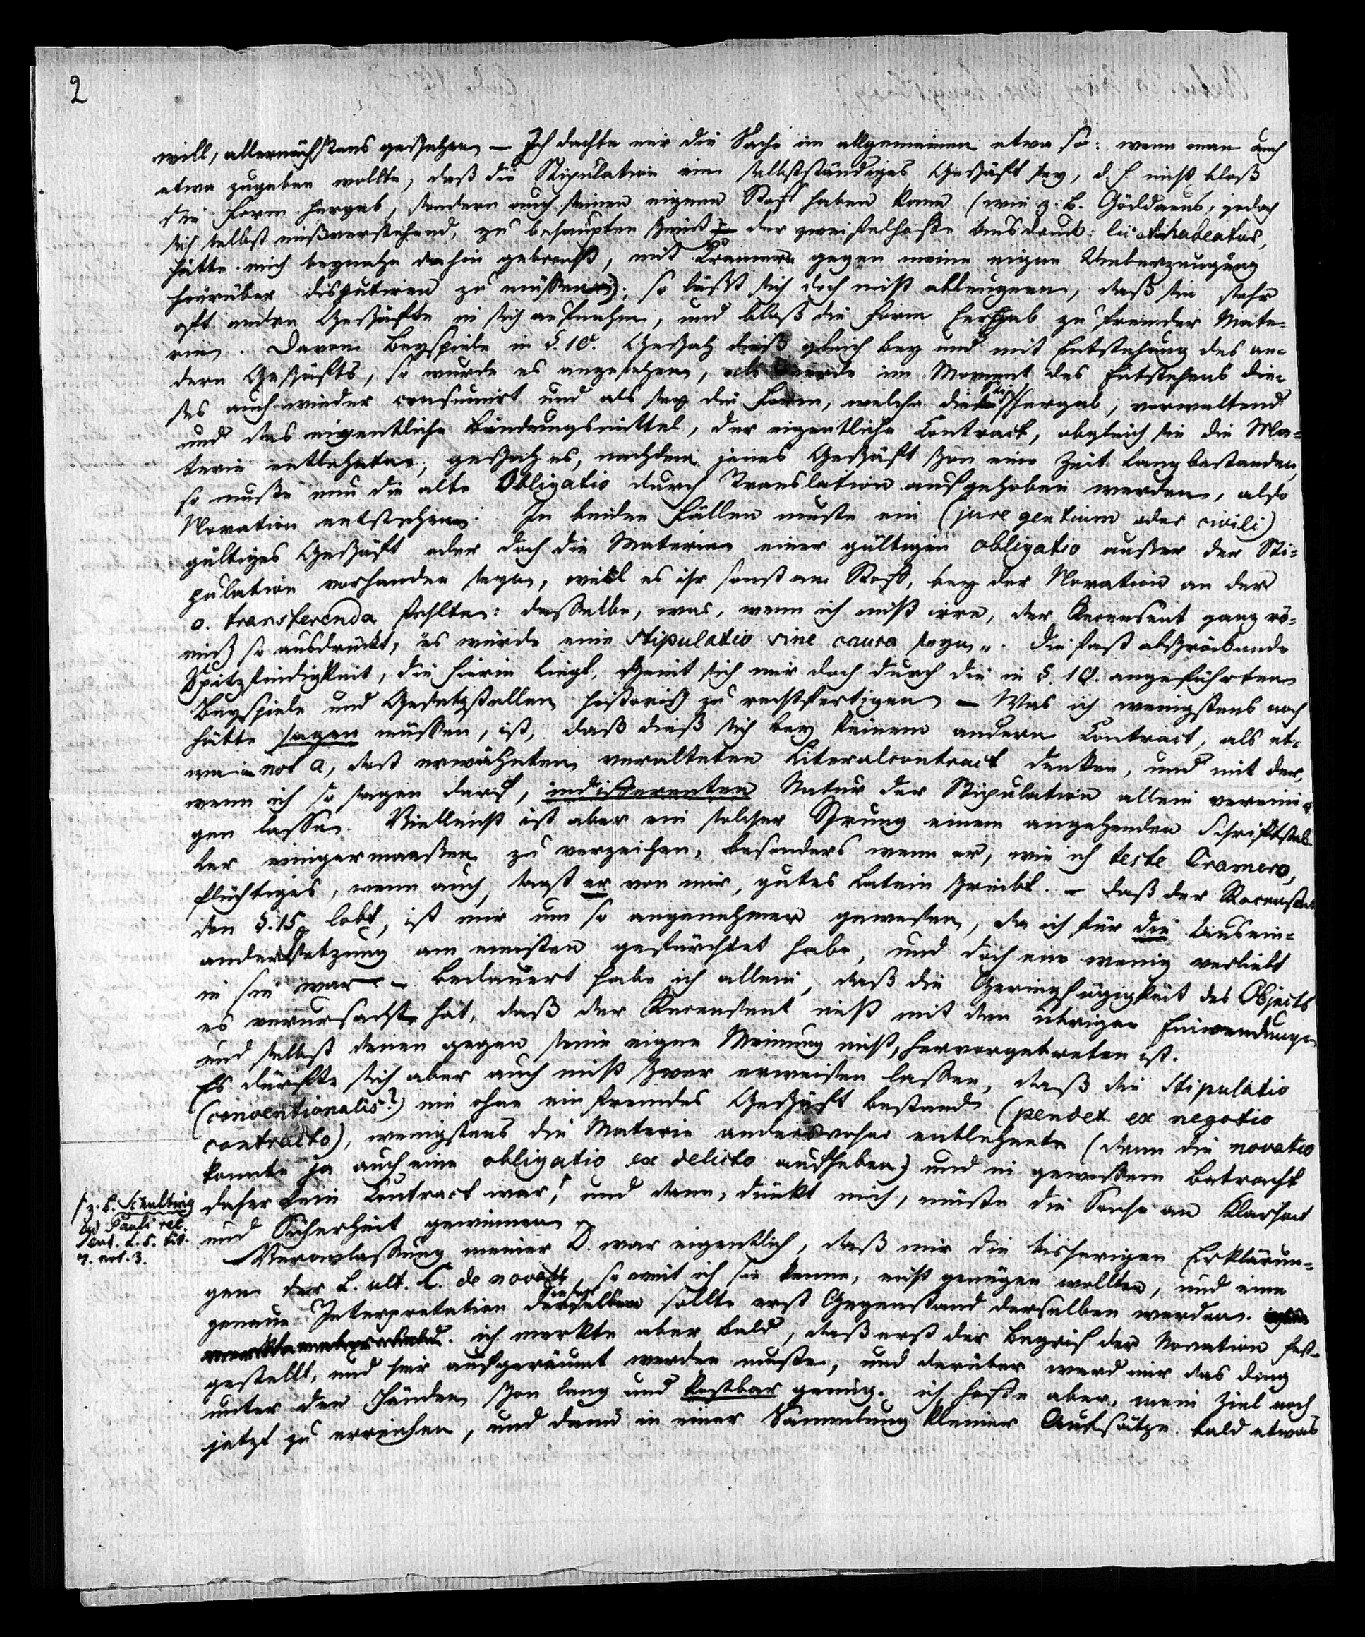 2
will, allernächstens geschehen – Ich dachte mir die Sache im allgemeinen etwa so: wenn man auch
etwa zugeben wollte, daß die Stipulation ein selbstständiges Geschäft sey, d. h. nicht bloß
die Form hergab, sondern auch seinen eigenen Stoff haben kann (wie z. B. Göddaeus, jedoch
sich selbst misverstehend, zu behaupten scheint der zweifelhafte Ausdruck:
hätte mich beynahe dahin gebracht, mit Cramern gegen meine eigne Ueberzeugung
hierüber disputiren zu müssen); so läßt sich doch nicht ableugnen, daß sie sehr
oft andre Geschäfte in sich aufnahm, und bloß die Form hergab zu fremder Mate-
rie. Davon Beyspiele in §. 10. Geschah dieß gleich bey und mit Entstehung des an-
dern Geschäfts, so wurde es angesehen, als werde im Moment des Entstehens die-
ses auch wieder consumirt und als sey die Form, welche die Stip. hergab, vorwaltend
und das eigentliche Bindungsmittel, der eigentliche Contract, obgleich sie die Ma-
terie entlehnte; geschah es, nachdem jenes Geschäft schon eine Zeit lang bestanden,
so mußte nun die alte Obligatio durch Translation aufgehoben werden, also
Novation entstehen. In beiden Fällen mußte ein (jure gentium oder civili)
gültiges Geschäft oder doch die Materie einer gültigen obligatio außer der Sti-
pulation vorhanden seyn, weil es ihr sonst am Stoff, bey der Novation an der
o. transferenda fehlte: dasselbe, was, wenn ich nicht irre, der Recensent ganz rö-
misch so ausdrückt, "es würde eine stipulatio sine causa seyn". Die fast abschreckende
Spitzfindigkeit, die hierin liegt, scheint sich mir doch durch die in §. 10. angeführten
Beyspiele und Gesetzstellen historisch zu rechtfertigen – Was ich wenigstens noch
hätte sagen müssen, ist, daß dieß sich bey keinem andern Contract, als et-
wa in not a, daß erwähnten veralteten Literalcontract denken, und mit der,
wenn ich so sagen darf, indifferenten Natur der Stipulation allein vereini-
gen lasse. Vielleicht ist aber ein solcher Sprung einem angehenden Schriftstel-
ler einigermaaßen zu verzeihen, besonders wenn er, wie ich teste Cramero,
flüchtiges, wenn auch, sagt er von mir, gutes Latein schreibt. – Daß der Recensent
den §. 15 lobt, ist mir um so angenehmer gewesen, da ich für die Ausein-
andersetzung am meisten gefürchtet habe, und doch ein wenig verliebt
in sie war – Bedauert habe ich allein, daß die Geringfügigkeit des Objects
es verursacht hat, daß der Recensent nicht mit den übrigen Einwendungen
und selbst denen gegen seine eigne Meinung nicht hervorgetreten ist.
Es dürfte sich aber auch nicht schwer erweisen lassen, daß die Stipulatio
(conventionalis?) nie ohne ein fremdes Geschäft bestand (pendet ex negotio
contracto), wenigstens die Materie anderswoher entlehnte (denn die novatio
konnte ja auch eine obligatio ex delicto aufheben) und in gewissem Betracht
daher kein Contract war, und dann, dünkt mich, müßte die Sache an Klarheit
und Sicherheit gewinnen.
z. B. Schulting
ad Pauli rec.
Sent. L. 5. tit.
7. not. 3.
Veranlassung meiner D. war eigentlich, daß mir die bisherigen Erklärun-
gen der L. ult. C. de novatt, so weit ich sie kenne, nicht genügen wollten, und eine
genaue Interpretation dieser sollte erst Gegenstand derselben werden.
ich merkte aber bald, daß erst der Begrif der Novation fest-
gestellt, und hier aufgeräumt werden müßte, und darüber ward mir das Ding
unter den Händen schon lang und kostbar genug. ich hoffe aber, mein Ziel noch
jetzt zu erreichen, und dann in einer Sammlung kleiner Aufsätze bald etwas